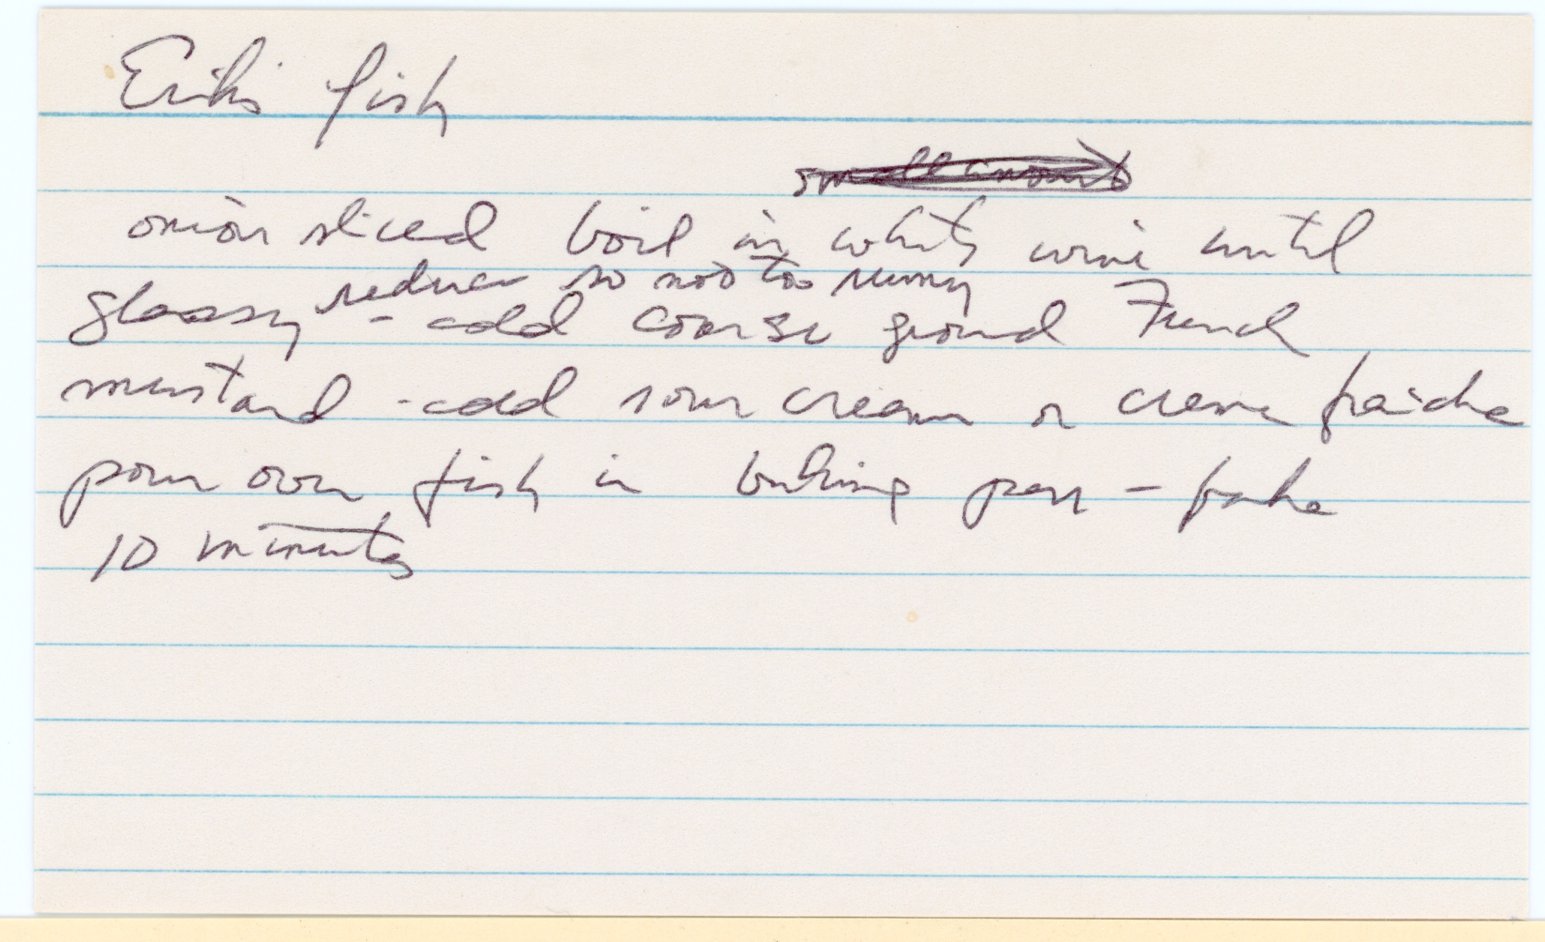 Erik's fish
small amount
onion sliced boil in white wine until
reduce so not too runny
glassy - add coarse ground French
mustard - add sour cream or creme fraiche
pour over fish in baking pan - bake
10 minutes